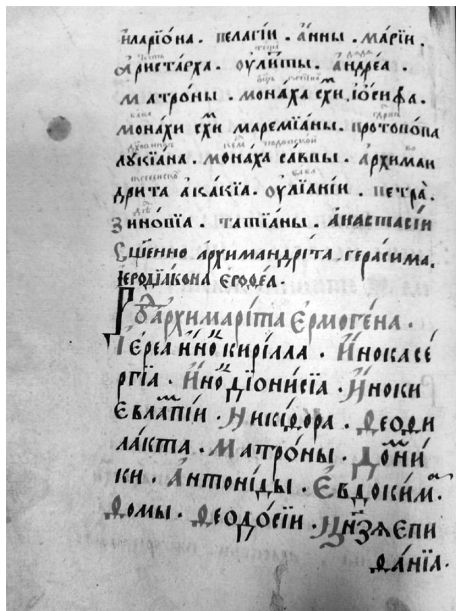 и҆ларїѡ́на . пелагі́и . а҆́нны . марі́и .
а҆риста́рха . ѹ҆ли́ты . а҆ндре́а .
матро́ны . мона́ха схи̑ . і҆ѡ́сифа .
мона́хи схи̑ маремїа́ны . протопо́па
лукїа́на . мона́ха са́ввы . а҆рхиман
дрита а҆ка́кїа . ѹ҆лїанїи . петра̀ .
зино́вїа . татїа́ны . а҆настасі́и
сщ҃е́нно а҆рхимандрі́та . гера́сима .
і҆еродїа́кона є҆роѳе́а .
Ро́ а҆рхимарі́та є҆рмоге́на .
І҆ере́а и҆но́ кирі́лла . И҆́нока се́
ргїа . И҆но́ дїони́сїа . И҆́ноки
є҆вла́мпїи . Ники́фора . Ѳео́фи
ла́кта . Матро́ны . До́мни́
ки . А҆нтони́ды . Є҆вдоки́м .
Ѳомы . Ѳеодо́сїи . єпи
фа́нїа .